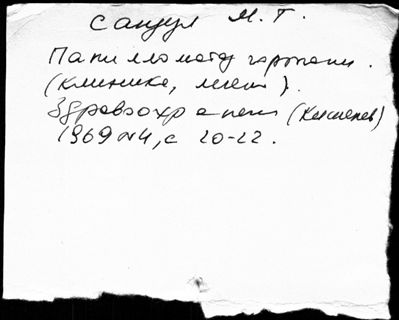 Сандул М. Г.
Папилломатоз гортани.
(клиника, лечен).
Здравоохранен (Кишинев)
1969 №4, с 20-22.